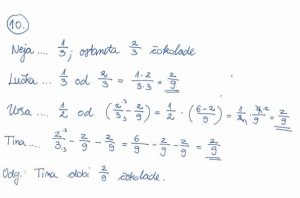 10.
Neja .... 1/3 ; ostaneta 2/3 čokolade
Lučka .... 1/3 od 2/3 = 1·2/3·3 = 2/9
Urša .... 1/2 od (2/3 - 2/9) = 1/2 · (6-2/9) = 1/2 · 4/9 = 2/9
Tina .... 2/3 - 2/9 - 2/9 = 6/9 - 2/9 - 2/9 = 2/9
Odg.: Tina dobi 2/9 čokolade.